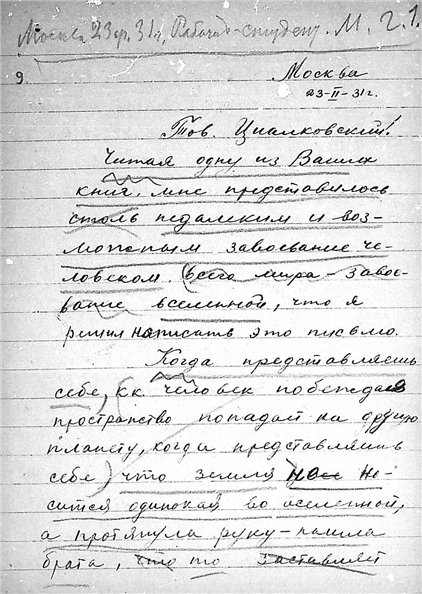 Москва 23 фр. 31 г. Рабочий-студент. М. Г. 1.
9.
Москва
23-II-31г.
Тов. Циалковский!
Читая одну из Ваших
книг, мне представилось
столь недалеким и воз-
можным завоевание че-
ловеком всего мира - завое-
вание вселенной, что я
решил написать это письмо.
Когда представляешь
себе, к.к. человек побеждая
пространство попадает на другую
планету, когда представляешь
себе, что земля но-
сится одинокая во вселенной,
а протянула руку - нашла
брата, что то заставляет